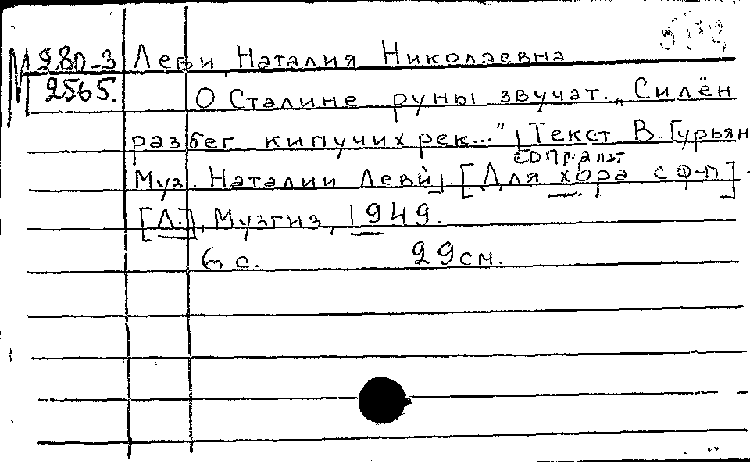 М 280-3 Леви, Наталия Николаевна
2565. О Сталине руны звучат. „Силён
разбег кипучих рек..." [Текст В. Гурьян
сопрано
Муз. Наталии Леви] [Для хора с ф-п]
[Л.], Музгиз, 1949.
6 с. 29 см.